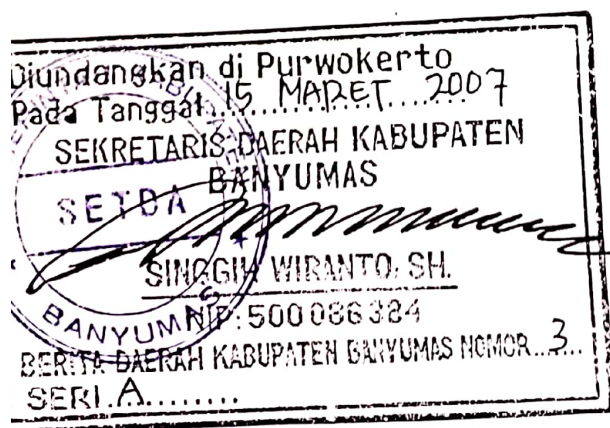 Diundangkan di Purwokerto
Pada Tanggal 15 MARET 2007
SEKRETARIS DAERAH KABUPATEN
BANYUMAS
SETDA
SINGGIH WIRANTO, SH.
BANYUMAS
NIP: 500086384
BERITA DAERAH KABUPATEN BANYUMAS NOMOR...3...
SERI.A........